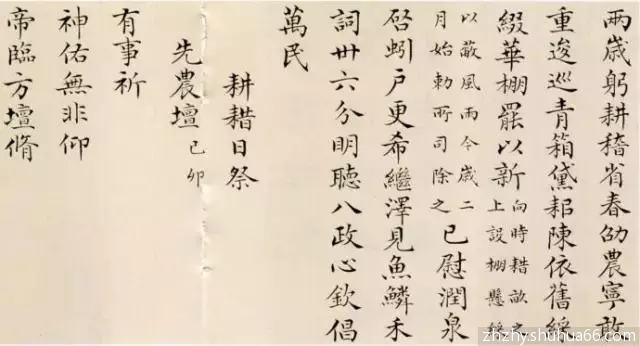 兩歲躬耕稽省春劭農寧敢
重逡巡青箱黛耜陳依舊綵
綴華棚罷以新
向時耤畝之
上設棚懸綵
以蔽風雨今歲二
月始勅所司除之
已慰潤泉
启蚓户更希繼澤見魚鱗禾
詞卅六分明聽八政心欽倡
萬民
耕耤日祭
先農壇 己卯
有事祈
神佑無非仰
帝臨方壇脩
zhzhy.shuhua66.com